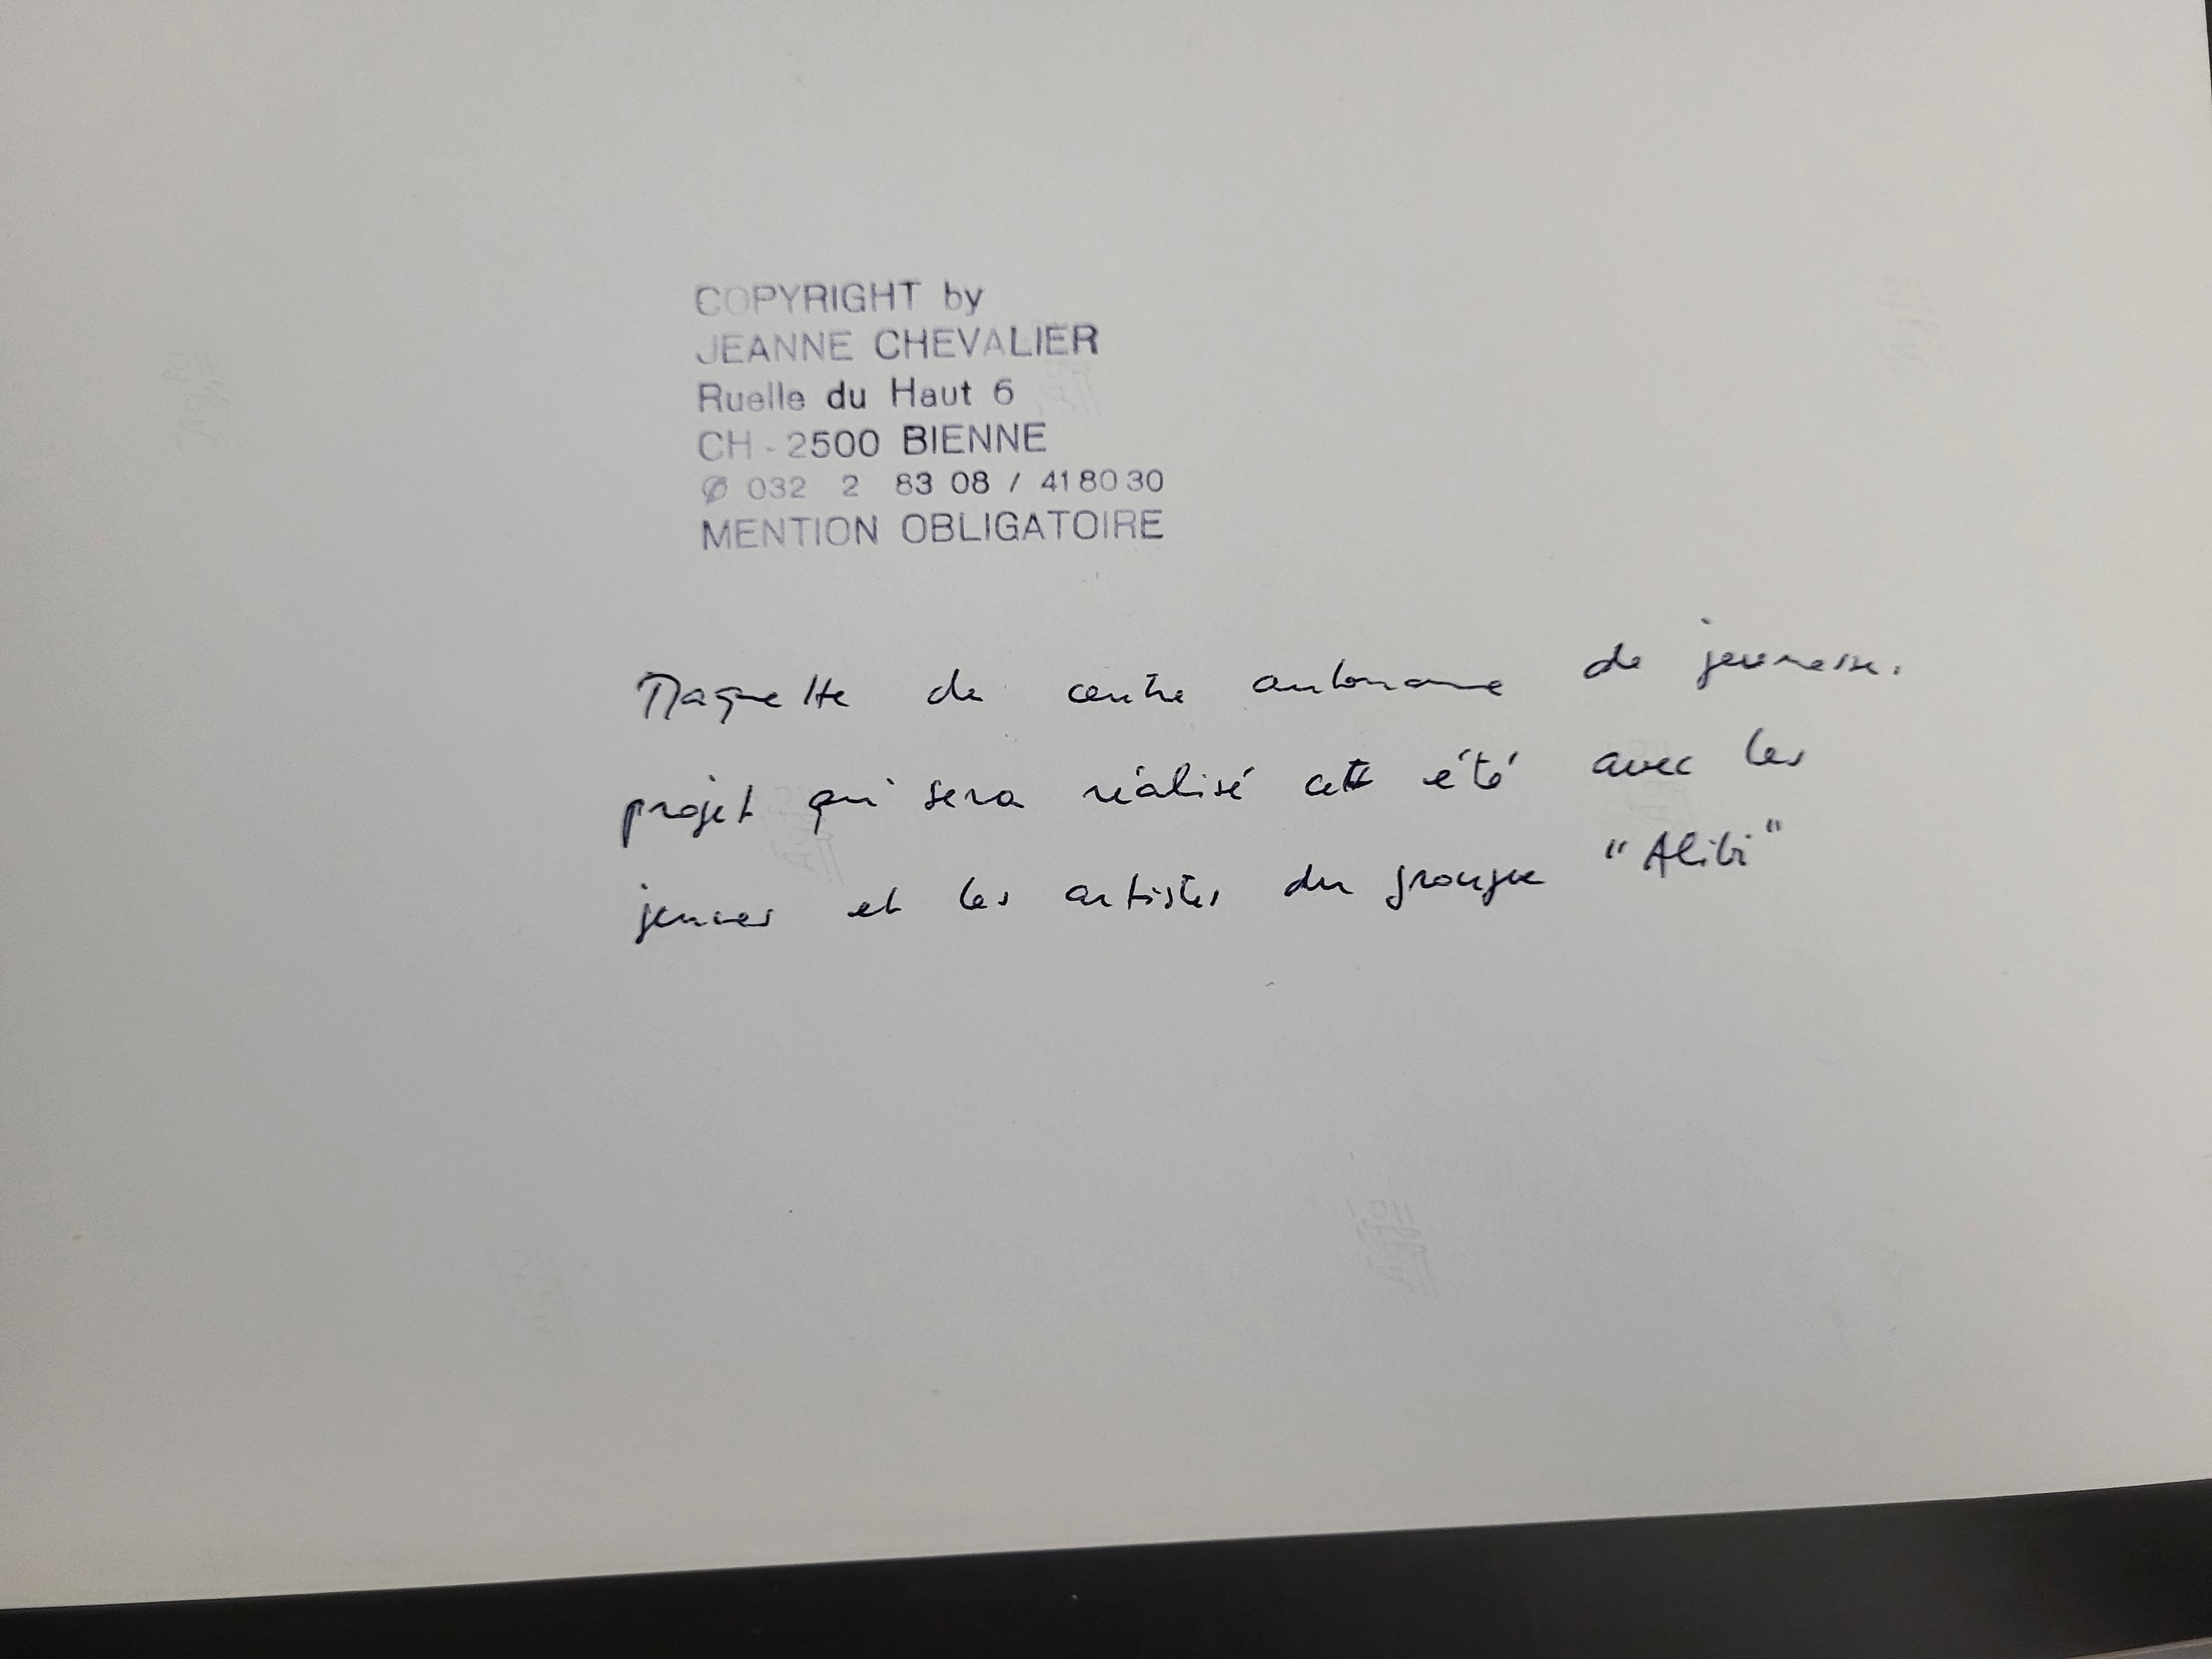 COPYRIGHT by
JEANNE CHEVALIER
Ruelle du Haut 6
CH - 2500 BIENNE
032 2 83 08 / 41 80 30
MENTION OBLIGATOIRE
Maquette de centre autonome de jeunesse.
projet qui sera réalisé cet été avec les
jeunes et les artistes du groupe "Alibi"